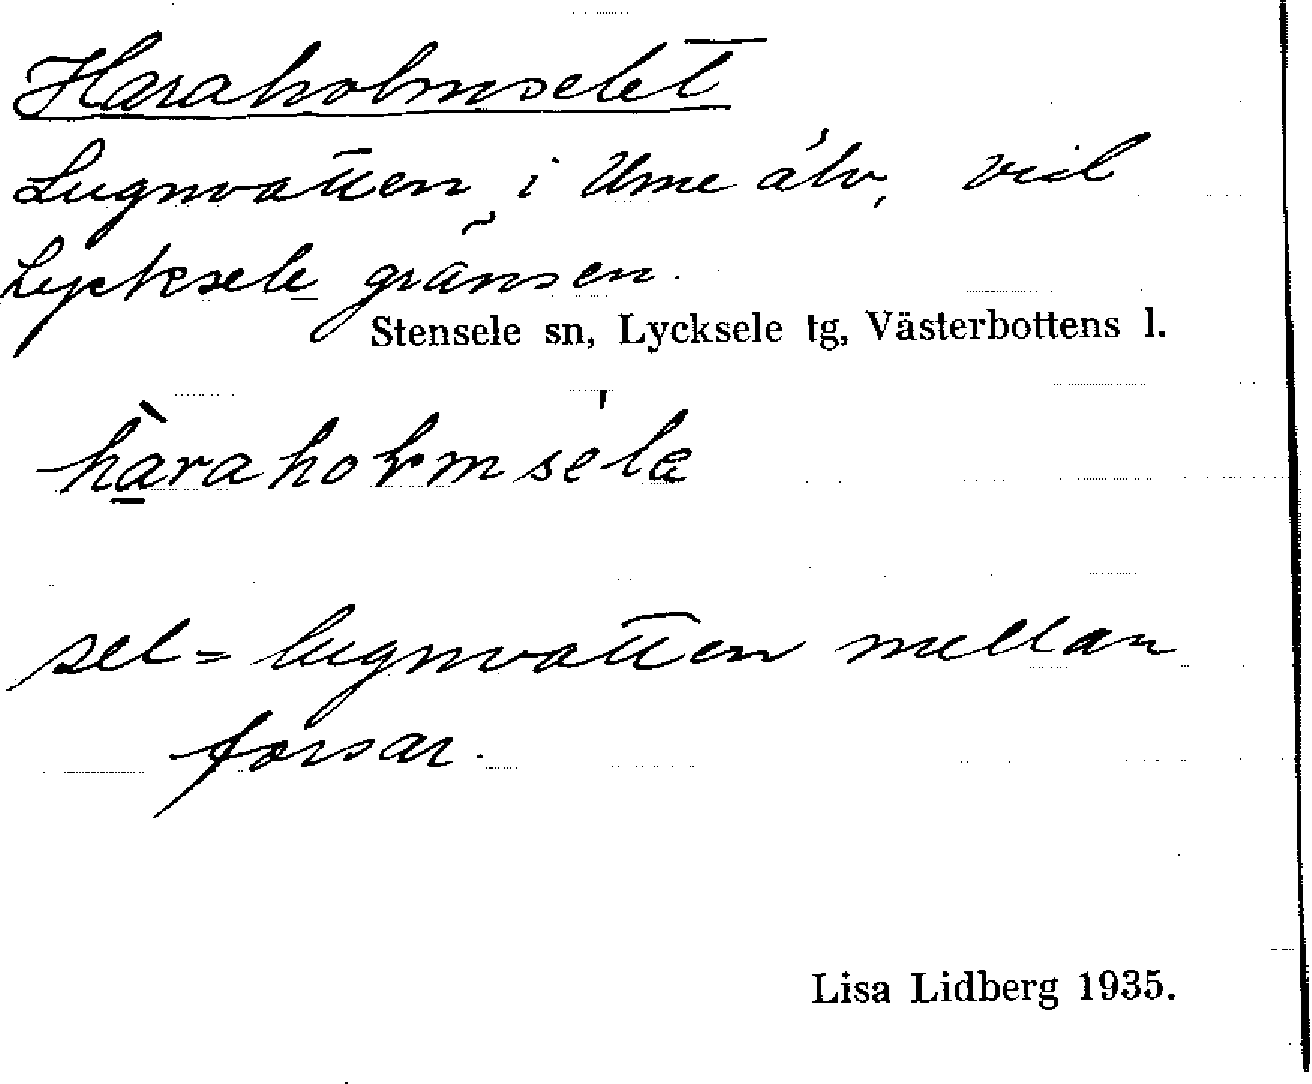 Haraholmselet
Lugnvatten i Ume älv, vid
Lycksele gränsen.
Stensele sn, Lycksele tg, Västerbottens l.
hàraholmsélæ
sel = lugnvatten mellan
forsar.
Lisa Lidberg 1935.